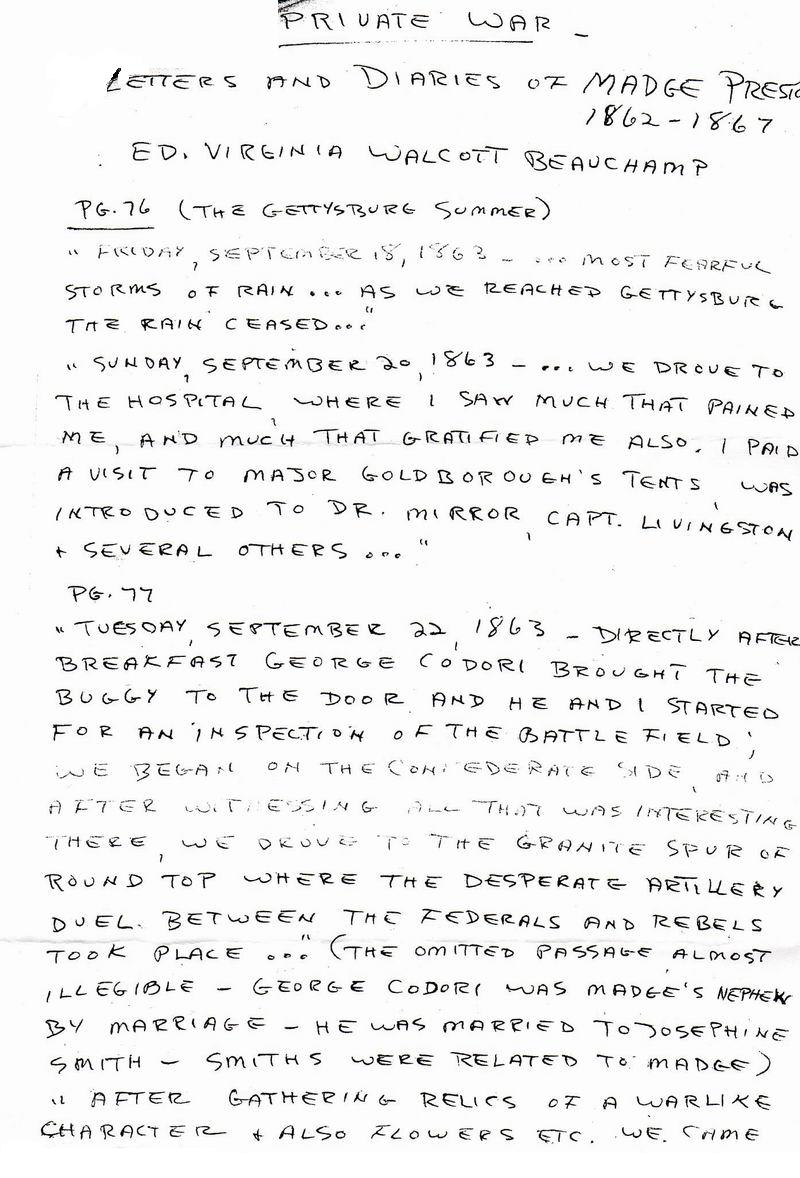 PRIVATE WAR -
LETTERS AND DIARIES OF MADGE PRESTO
1862-1867
ED. VIRGINIA WALCOTT BEAUCHAMP
PG. 76 (THE GETTYSBURG SUMMER)
" FRIDAY, SEPTEMBER 18, 1863 - ... MOST FEARFUL
STORMS OF RAIN ... AS WE REACHED GETTYSBURG
THE RAIN CEASED..."
" SUNDAY, SEPTEMBER 20, 1863 - ... WE DROVE TO
THE HOSPITAL, WHERE I SAW MUCH THAT PAINED
ME, AND MUCH THAT GRATIFIED ME ALSO. I PAID
A VISIT TO MAJOR GOLDBOROUGH'S TENTS, WAS
INTRODUCED TO DR. MIRROR, CAPT. LIVINGSTON
+ SEVERAL OTHERS ..."
PG. 77
" TUESDAY, SEPTEMBER 22, 1863 - DIRECTLY AFTER
BREAKFAST GEORGE CODORI BROUGHT THE
BUGGY TO THE DOOR AND HE AND I STARTED
FOR AN INSPECTION OF THE BATTLE FIELD;
WE BEGAN ON THE CONFEDERATE SIDE, AND
AFTER WITNESSING ALL THAT WAS INTERESTING
THERE, WE DROVE TO THE GRANITE SPUR OF
ROUND TOP WHERE THE DESPERATE ARTILLERY
DUEL. BETWEEN THE FEDERALS AND REBELS
TOOK PLACE ..." (THE OMITTED PASSAGE ALMOST
ILLEGIBLE - GEORGE CODORI WAS MADGE'S NEPHEW
BY MARRIAGE - HE WAS MARRIED TO JOSEPHINE
SMITH - SMITHS WERE RELATED TO MADGE)
" AFTER GATHERING RELICS OF A WARLIKE
CHARACTER + ALSO FLOWERS ETC. WE CAME